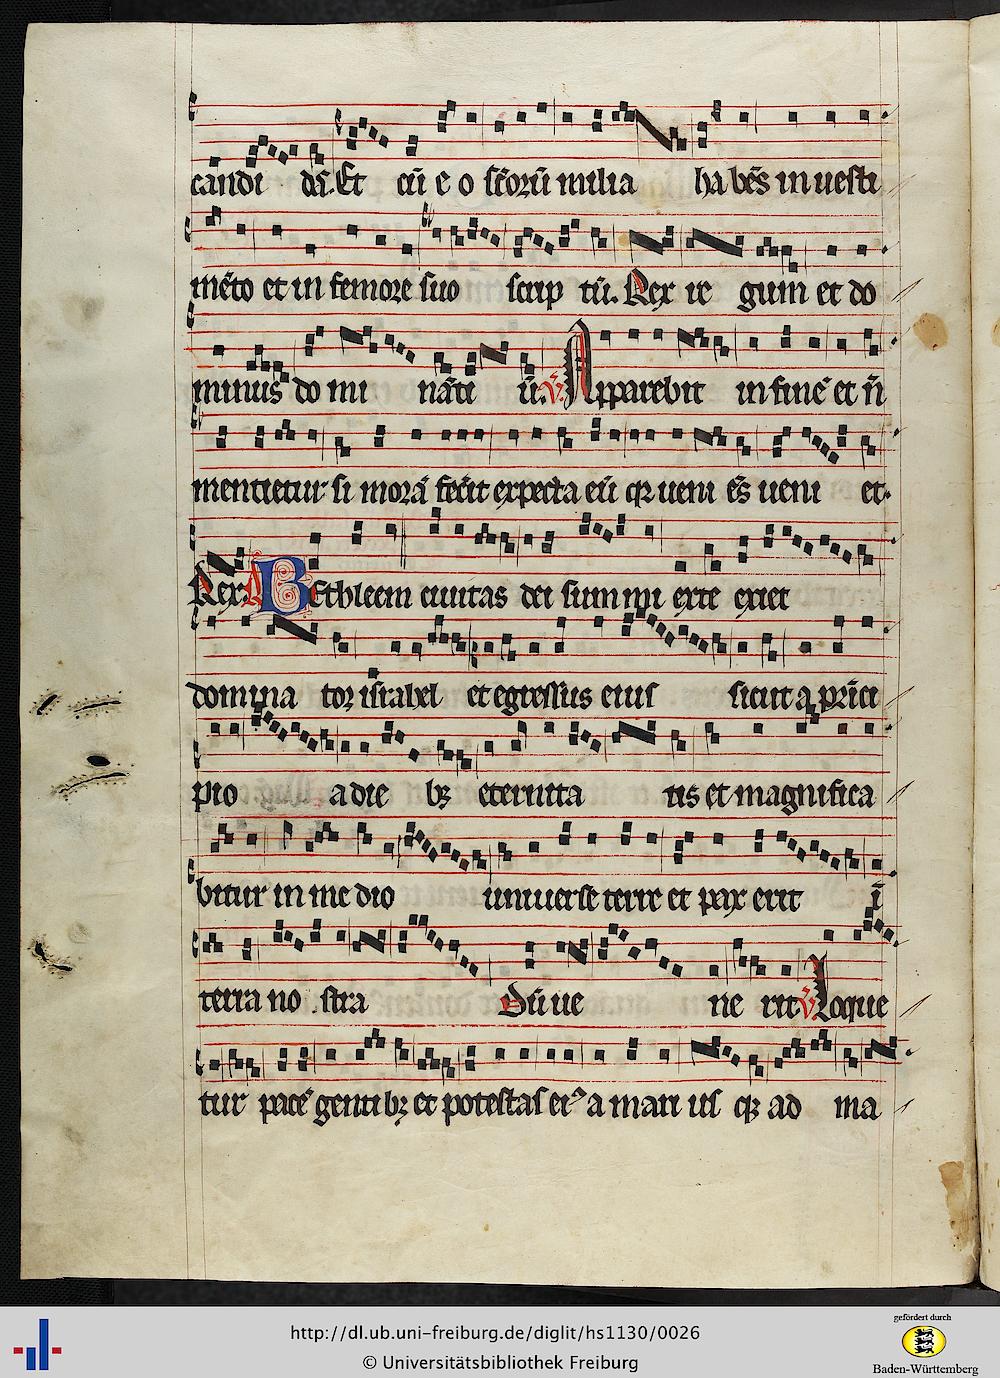 candi dā. Et cū e o sc̄orū milia ha bēs in uesti
mēto et in femore suo scrip tū. Rex re gum et do
minus do mi nāti ū. V̄ Apparebit in fine et n̄
mentietur si morā fec̄it expecta eū qꝛ ueni ēs ueni et.
Rex. R Bethleem ciuitas dei summi exte exiet
domina tor israhel et egressus eius sicut a prīci
pio a die bꝫ eternita tis et magnifica
bitur in me dio uniuerse terre et pax erit ī
terra no stra Dū ue ne rit V̄ Loque
tur pacē gentibꝫ et potestas eiꝰ a mari us qꝫ ad ma
http://dl.ub.uni-freiburg.de/diglit/hs1130/0026
© Universitätsbibliothek Freiburg
gefördert durch
Baden-Württemberg